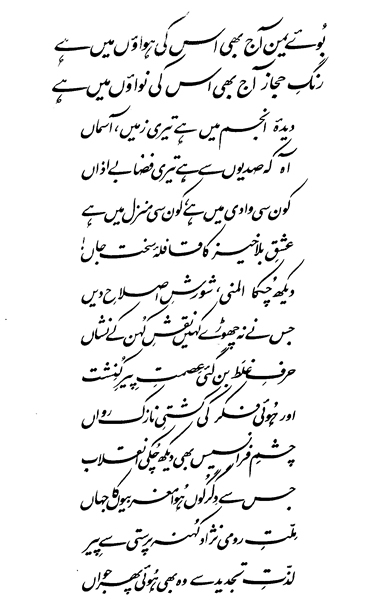 بُوئے یمن آج بھی اس کی ہواؤں میں ہے
رنگِ حجاز آج بھی اس کی نواؤں میں ہے
دیدۂ انجم میں ہے تیری زمیں، آسماں
آہ کہ صدیوں سے ہے تیری فضا بے اذاں
کون سی وادی میں ہے، کون سی منزل میں ہے
عشقِ بلا خیز کا قافلۂ سخت جاں!
دیکھ چُکا المنی، شورشِ اصلاحِ دیں
جس نے نہ چھوڑے کہیں نقشِ کُہن کے نشاں
حرفِ غلَط بن گئی عِصمتِ پیرِ کُنِشت
اور ہُوئی فکر کی کشتیِ نازک رواں
چشمِ فرانسیس بھی دیکھ چُکی انقلاب
جس سے دِگرگُوں ہُوا مغربیوں کا جہاں
ملّتِ رومی نژاد کُہنہ پرستی سے پیر
لذّتِ تجدید سے وہ بھی ہوئی پھر جواں